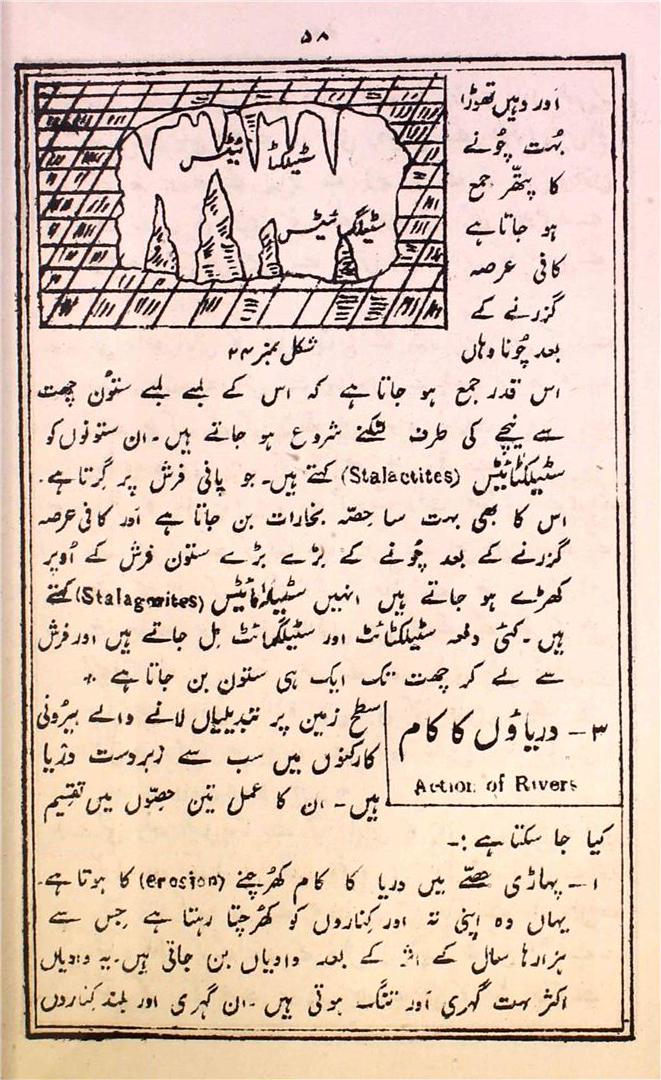 ۵۸
اور وہیں تھوڑا
بہت چُونے
کا پتھّر جمع
ہو جاتا ہے
کافی عرصہ
گزرنے کے
بعد چُونا وہاں
سٹیلکٹا ئیٹس
سٹیلگمائیٹس
شکل نمبر ۲۴
اس قدر جمع ہو جاتا ہے کہ اس کے لمبے لمبے ستُون چھت
سے نیچے کی طرف لٹکنے شروع ہو جاتے ہیں۔ ان ستونوں کو
سٹیلکٹائیٹس (Stalactites) کہتے ہیں۔ جو پانی فرش پر گرتا ہے۔
اس کا بھی بہت سا حصّہ بخارات بن جاتا ہے اَور کافی عرصہ
گزرنے کے بعد چُونے کے بڑے بڑے ستون فرش کے اُوپر
کھڑے ہو جاتے ہیں انہیں سٹیلگمائیٹس (Stalagmites) کہتے
ہیں۔ کئی دفعہ سٹیلکٹائٹ اور سٹیلگمائٹ مِل جاتے ہیں اور فرش
سے لے کر چھت تک ایک ہی ستون بن جاتا ہے ٭
۳ – دریاؤں کا کام
Action of Rivers
سطح زمین پر تبدیلیاں لانے والے بیرُونی
کارکنوں میں سب سے زبردست دریا
ہیں۔ ان کا عمل تین حصّوں میں تقسیم
کیا جا سکتا ہے :۔
۱ – پہاڑی حصّے میں دریا کا کام کھُرچنے (erosion) کا ہوتا ہے۔
یہاں وہ اپنی تہ اور کناروں کو کھُرچتا رہتا ہے جس سے
ہزارہا سال کے اثر کے بعد وادیاں بن جاتی ہیں۔ یہ وادیاں
اکثر بہت گہری اَور تنگ ہوتی ہیں۔ ان گہری اور بلند کناروں